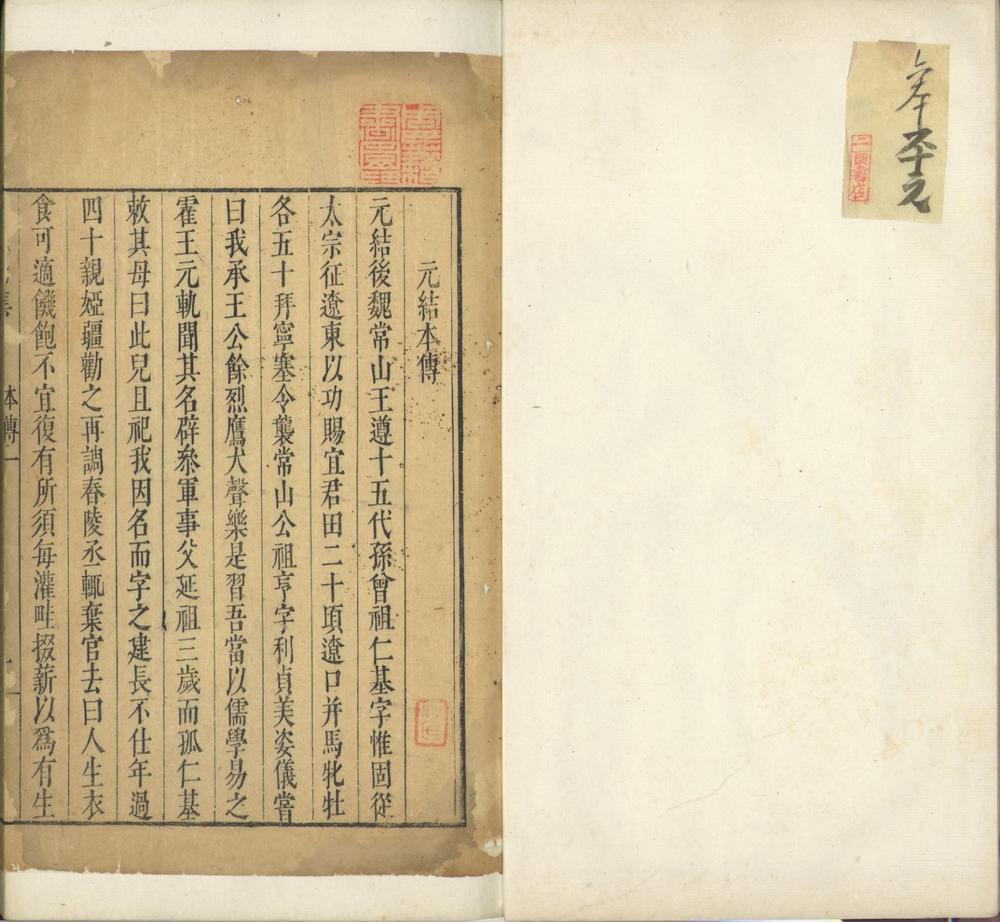 六本 平元
元結本傳
元結後魏常山王遵十五代孫曾祖仁基字惟固從
太宗征遼東以功賜宜君田二十頃遼口并馬牝牡
各五十拜寧塞令襲常山公祖亨字利貞美姿儀嘗
曰我承王公餘烈鷹犬聲樂是習吾當以儒學易之
霍王元軌聞其名辟叅軍事父延祖三歲而孤仁基
敕其母曰此兒且祀我因名而字之逮長不仕年過
四十親婭彊勸之再調舂陵丞輒棄官去曰人生衣
食可適饑飽不宜復有所須每灌畦掇薪以爲有生
本傳
一